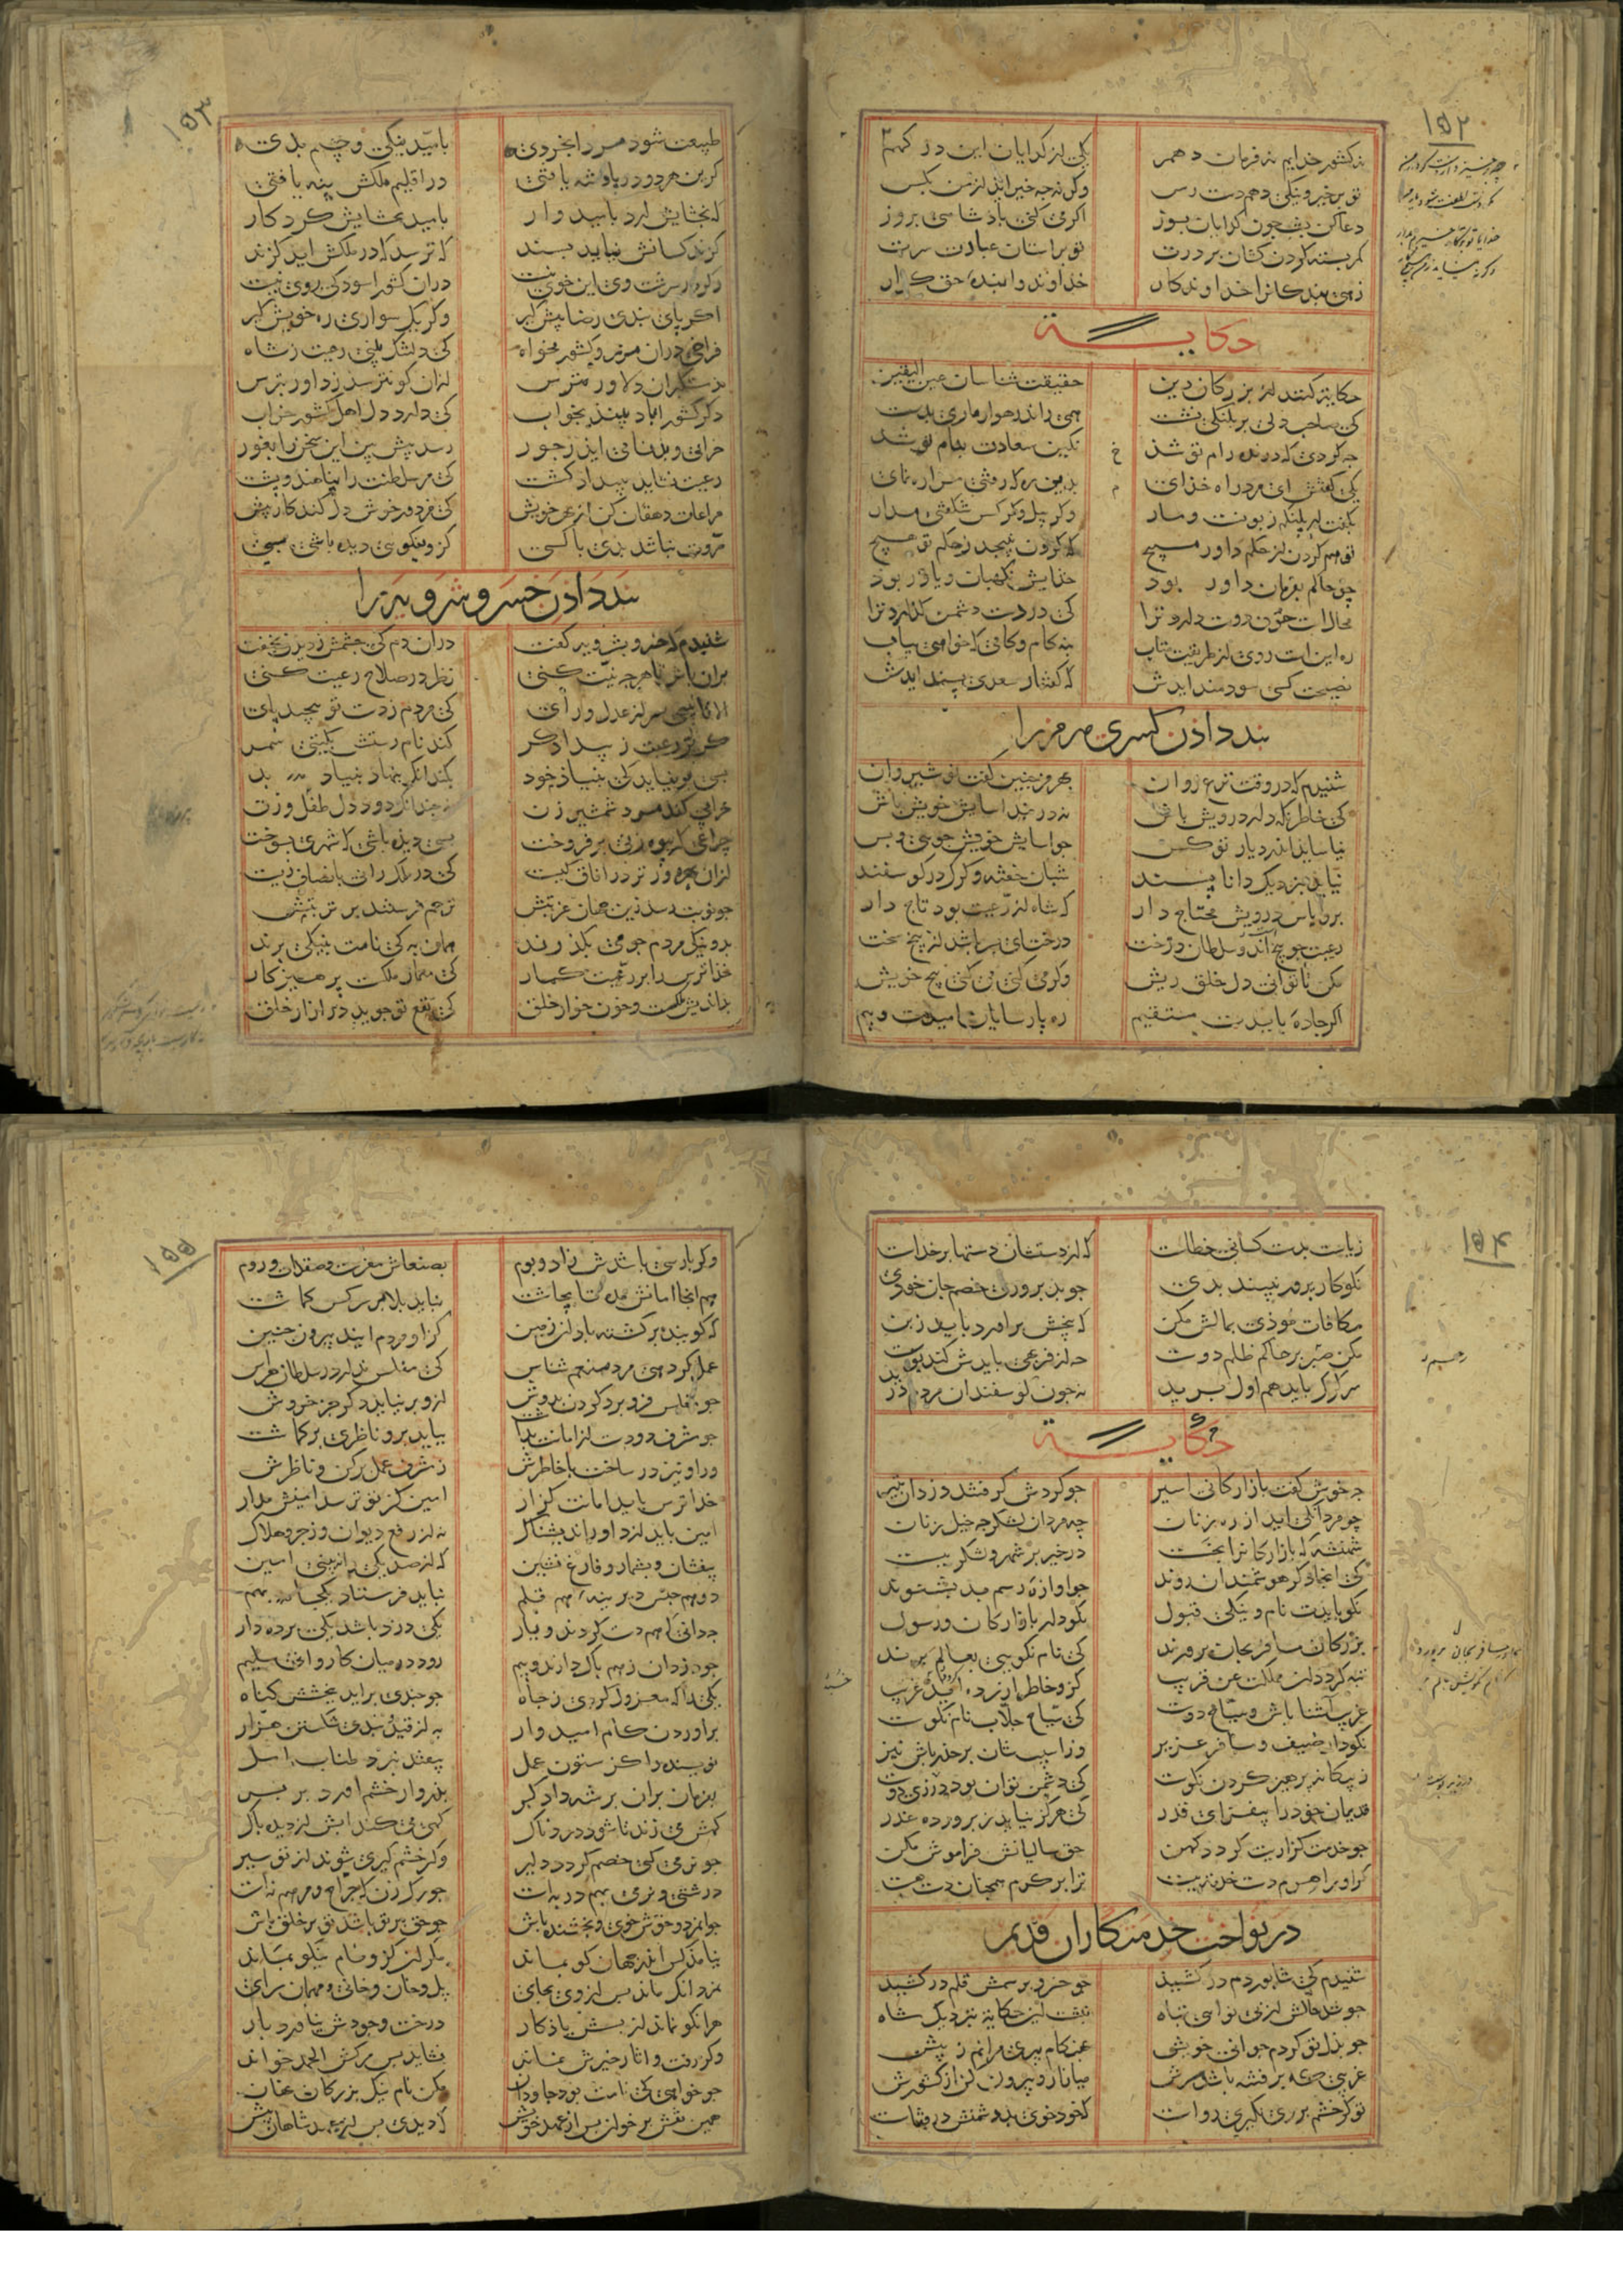 ۱۵۲
نه کشور خدایم نه فرمان دهم یکی از کدایان این در کهم
تو بر خیر و نیکی دهم دست رس وکر نه چه خیر آید از من بکس
دعا کن بشب چون کدایان بسوز اکر می کنی پادشاهی بروز
کمر بسته کردن کشان بر درت تو بر آستان عبادت سرت
زهی بندکانرا خداوندکار خداوند را بنده حق کزار
حکایت
حکایت کنند از بزرکان دین حقیقت شناسان عین الیقین
کی صاحب دلی بر پلنکی نشست همی راند رهوار و ماری بدست
چه کردی که درنده رام تو شد نکین سعادت بنام تو شد
یکی کفتش ای مرد راه خدای بدین ره که رفتی مرا ره نمای
بکفت ار پلنکم زبونست و مار وکر پیل و کرکس شکفتی مدار
تو هم کردن از حکم داور مپیچ که کردن نپیچد ز حکم تو هیچ
چو حاکم بفرمان داور بود خدایش نکهبان و یاور بود
محالست چون دوست دارد ترا کی در دست دشمن کذارد ترا
ره اینست روی از طریقت متاب بنه کام و کامی که خواهی بیاب
نصیحت کسی سودمند آیدش که کفتار سعدی پسند آیدش
پند دادن کسری هرمز را
شنیدم که در وقت نزع روان بهرمز چنین کفت نوشیروان
کی خاطر نکه دار درویش باش نه در بند آسایش خویش باش
نیاساید اندر دیار تو کس چو آسایش خویش جویی و بس
نیاید بنزدیک دانا پسند شبان خفته و کرک در کوسفند
برو پاس درویش محتاج دار که شاه از رعیت بود تاج دار
رعیت چو بیخ اند و سلطان درخت درخت ای پسر باشد از بیخ سخت
مکن تا توانی دل خلق ریش وکر می کنی می کنی بیخ خویش
اکر جاده بایدت مستقیم ره پارسایان امیدست و بیم
۱۵۳
طبیعت شود مرد را بخردی بامید نیکی و بیم بدی
کر این هر دو در پادشه یافتی در اقلیم ملکش پنه یافتی
که بخشایش آرد بامیدوار بامید بخشایش کردکار
کزند کسانش نیاید پسند که ترسد که در ملکش آید کزند
وکر در سرشت وی این خوی نیست در آن کشور آسودکی روی نیست
اکر پای بندی رضا پیش کیر وکر یک سواری ره خویش کیر
فراخی در آن مرز و کشور مخواه کی دلتنک بینی رعیت ز شاه
ز مستکبران دلاور مترس از آن کو نترسد ز داور بترس
دکر کشور آباد بیند بخواب کی دارد دل اهل کشور خراب
خرابی و بدنامی آید ز جور رسد پیش بین این سخن را بغور
رعیت نشاید ببیداد کشت کی مر سلطنت را پناهند و پشت
مراعات دهقان کن از بهر خویش کی مزدور خوش دل کند کار بیش
مروت نباشد بدی با کسی کزو نیکویی دیده باشی بسی
پند دادن خسرو شرویه را
شنیدم که خسرو بشرویه کفت در آن دم کی چشمش ز دیدن بخفت
بران باش تا هرچه نیت کنی نظر در صلاح رعیت کنی
الا تا نپیچی سر از عدل و رای کی مردم ز دستت نپیچند پای
کریزد رعیت ز بیدادکر کند نام زشتش بکیتی سمر
بسی برنیاید کی بنیاد خود بکند آنک بنهاد بنیاد بد
خرابی کند مرد شمشیر زن نه چندانک دود دل طفل و زن
چراغی که بیوه زنی برفروخت بسی دیده باشی که شهری بسوخت
از آن بهره ورتر در آفاق کیست کی در ملک رانی بانصاف زیست
چو نوبت رسد زین جهان غربتش ترحم فرستند بر تربتش
بد و نیک مردم چو می بکذرند همان به کی نامت بنیکی برند
خدا ترس را بر رعیت کمار کی معمار ملکست پرهیزکار
بداندیش ملکست و خون خوار خلق کی نفع تو جوید در آزار خلق
۱۵۴
ریاست بدست کسانی خطاست که از دستشان دستها بر خداست
نکوکار پرور نبیند بدی چو بد پروری خصم جان خودی
مکافات موذی بمالش مکن که بیخش برآورد باید ز بن
مکن صبر بر حاکم ظلم دوست چه از فربهی بایدش کند پوست
سر کرک باید هم اول برید نه چون کوسفندان مردم درید
حکایت
چه خوش کفت بازارکانی اسیر چو کردش کرفتند دزدان بتیر
چو مردانکی آید از ره زنان چه مردان لشکر چه خیل زنان
شهنشه که بازارکانرا بخست در خیر بر شهر و لشکر ببست
کی آنجا دکر هوشمندان روند چو آوازه رسم بد بشنوند
نکو بایدت نام و نیکی قبول نکو دار بازارکان و رسول
بزرکان مسافر بجان پرورند کی نام نکویی بعالم برند
تبه کردد آن مملکت عن قریب کزو خاطر آزرده آید غریب
غریب آشنا باش و سیاح دوست کی سیاح جلاب نام نکوست
نکودار ضیف و مسافر عزیز وز آسیبشان بر حذر باش نیز
ز بیکانه پرهیز کردن نکوست کی دشمن توان بود در زی دوست
قدیمان خود را بیفزای قدر کی هرکز نیاید ز پرورده غدر
چو خدمت کزاریت کردد کهن حق سالیانش فرامش مکن
کر او را هرم دست خدمت ببست ترا بر کرم همچنان دست هست
در نواخت خدمتکاران قدیم
شنیدم کی شابور دم در کشید چو خسرو برسمش قلم در کشید
چو شد حالش از بی نوایی تباه نبشت این حکایت بنزدیک شاه
چو بذل تو کردم جوانی خویش بهنکام پیری مرانم ز پیش
غریبی که پر فتنه باشد سرش میازار و بیرون کن از کشورش
تو کر خشم بر وی نکیری رواست که خود خوی بد دشمنش در قفاست
۱۵۵
وکر پارسی باشدش زاد و بوم بصنعاش مفرست و صقلاب و روم
هم آنجا امانش مده تا بچاشت نباید بلا بر سر کس کماشت
که کویند برکشته باد آن زمین کزو مردم آیند بیرون چنین
عمل کر دهی مرد منعم شناس کی مفلس ندارد ز سلطان هراس
چو مفلس فرو برد کردن بدوش ازو برنیاید دکر جز خروش
چو مشرف دو دست از امانت بداشت بباید برو ناظری برکماشت
ور او نیز در ساخت با خاطرش ز مشرف عمل برکن و ناظرش
خدا ترس باید امانت کزار امین کز تو ترسد امینش مدار
امین باید از داور اندیشناک نه از رفع دیوان و زجر و هلاک
بیفشان و بشمار و فارغ نشین که از صد یکی را نبینی امین
دو هم جنس دیرینه هم قلم نباید فرستاد یکجا بهم
چه دانی که هم دست کردند و یار یکی دزد باشد یکی پرده دار
چو دزدان ز هم باک دارند و بیم رود در میان کاروانی سلیم
یکی را که معزول کردی ز جاه چو چندی برآید ببخشش کناه
برآوردن کام امیدوار به از قید بندی شکستن هزار
نویسنده را کر ستون عمل بیفتد نبرد طناب امل
بفرمان بران بر شه دادکر پدروار خشم آورد بر پسر
کهش می زند تا شود دردناک کهی می کند آبش از دیده پاک
چو نرمی کنی خصم کردد دلیر وکر خشم کیری شوند از تو سیر
درشتی و نرمی بهم در بهست چو رک زن که جراح و مرهم نهست
جوامرد و خوش خوی و بخشنده باش چو حق بر تو باشد تو بر خلق پاش
نیامد کس اندر جهان کو بماند مکر آن کزو نام نیکو بماند
نمرد آنک ماند پس از وی بجای پل و خان و خانی و مهمان سرای
هر آنکو نماند از پسش یادکار درخت وجودش نیاورد بار
وکر رفت و آثار خیرش نماند نشاید پس مرکش الحمد خواند
چو خواهی کی نامت بود جاودان مکن نام نیک بزرکان نهان
همین نقش بر خوان پس از عهد خویش که دیدی پس از عهد شاهان پیش